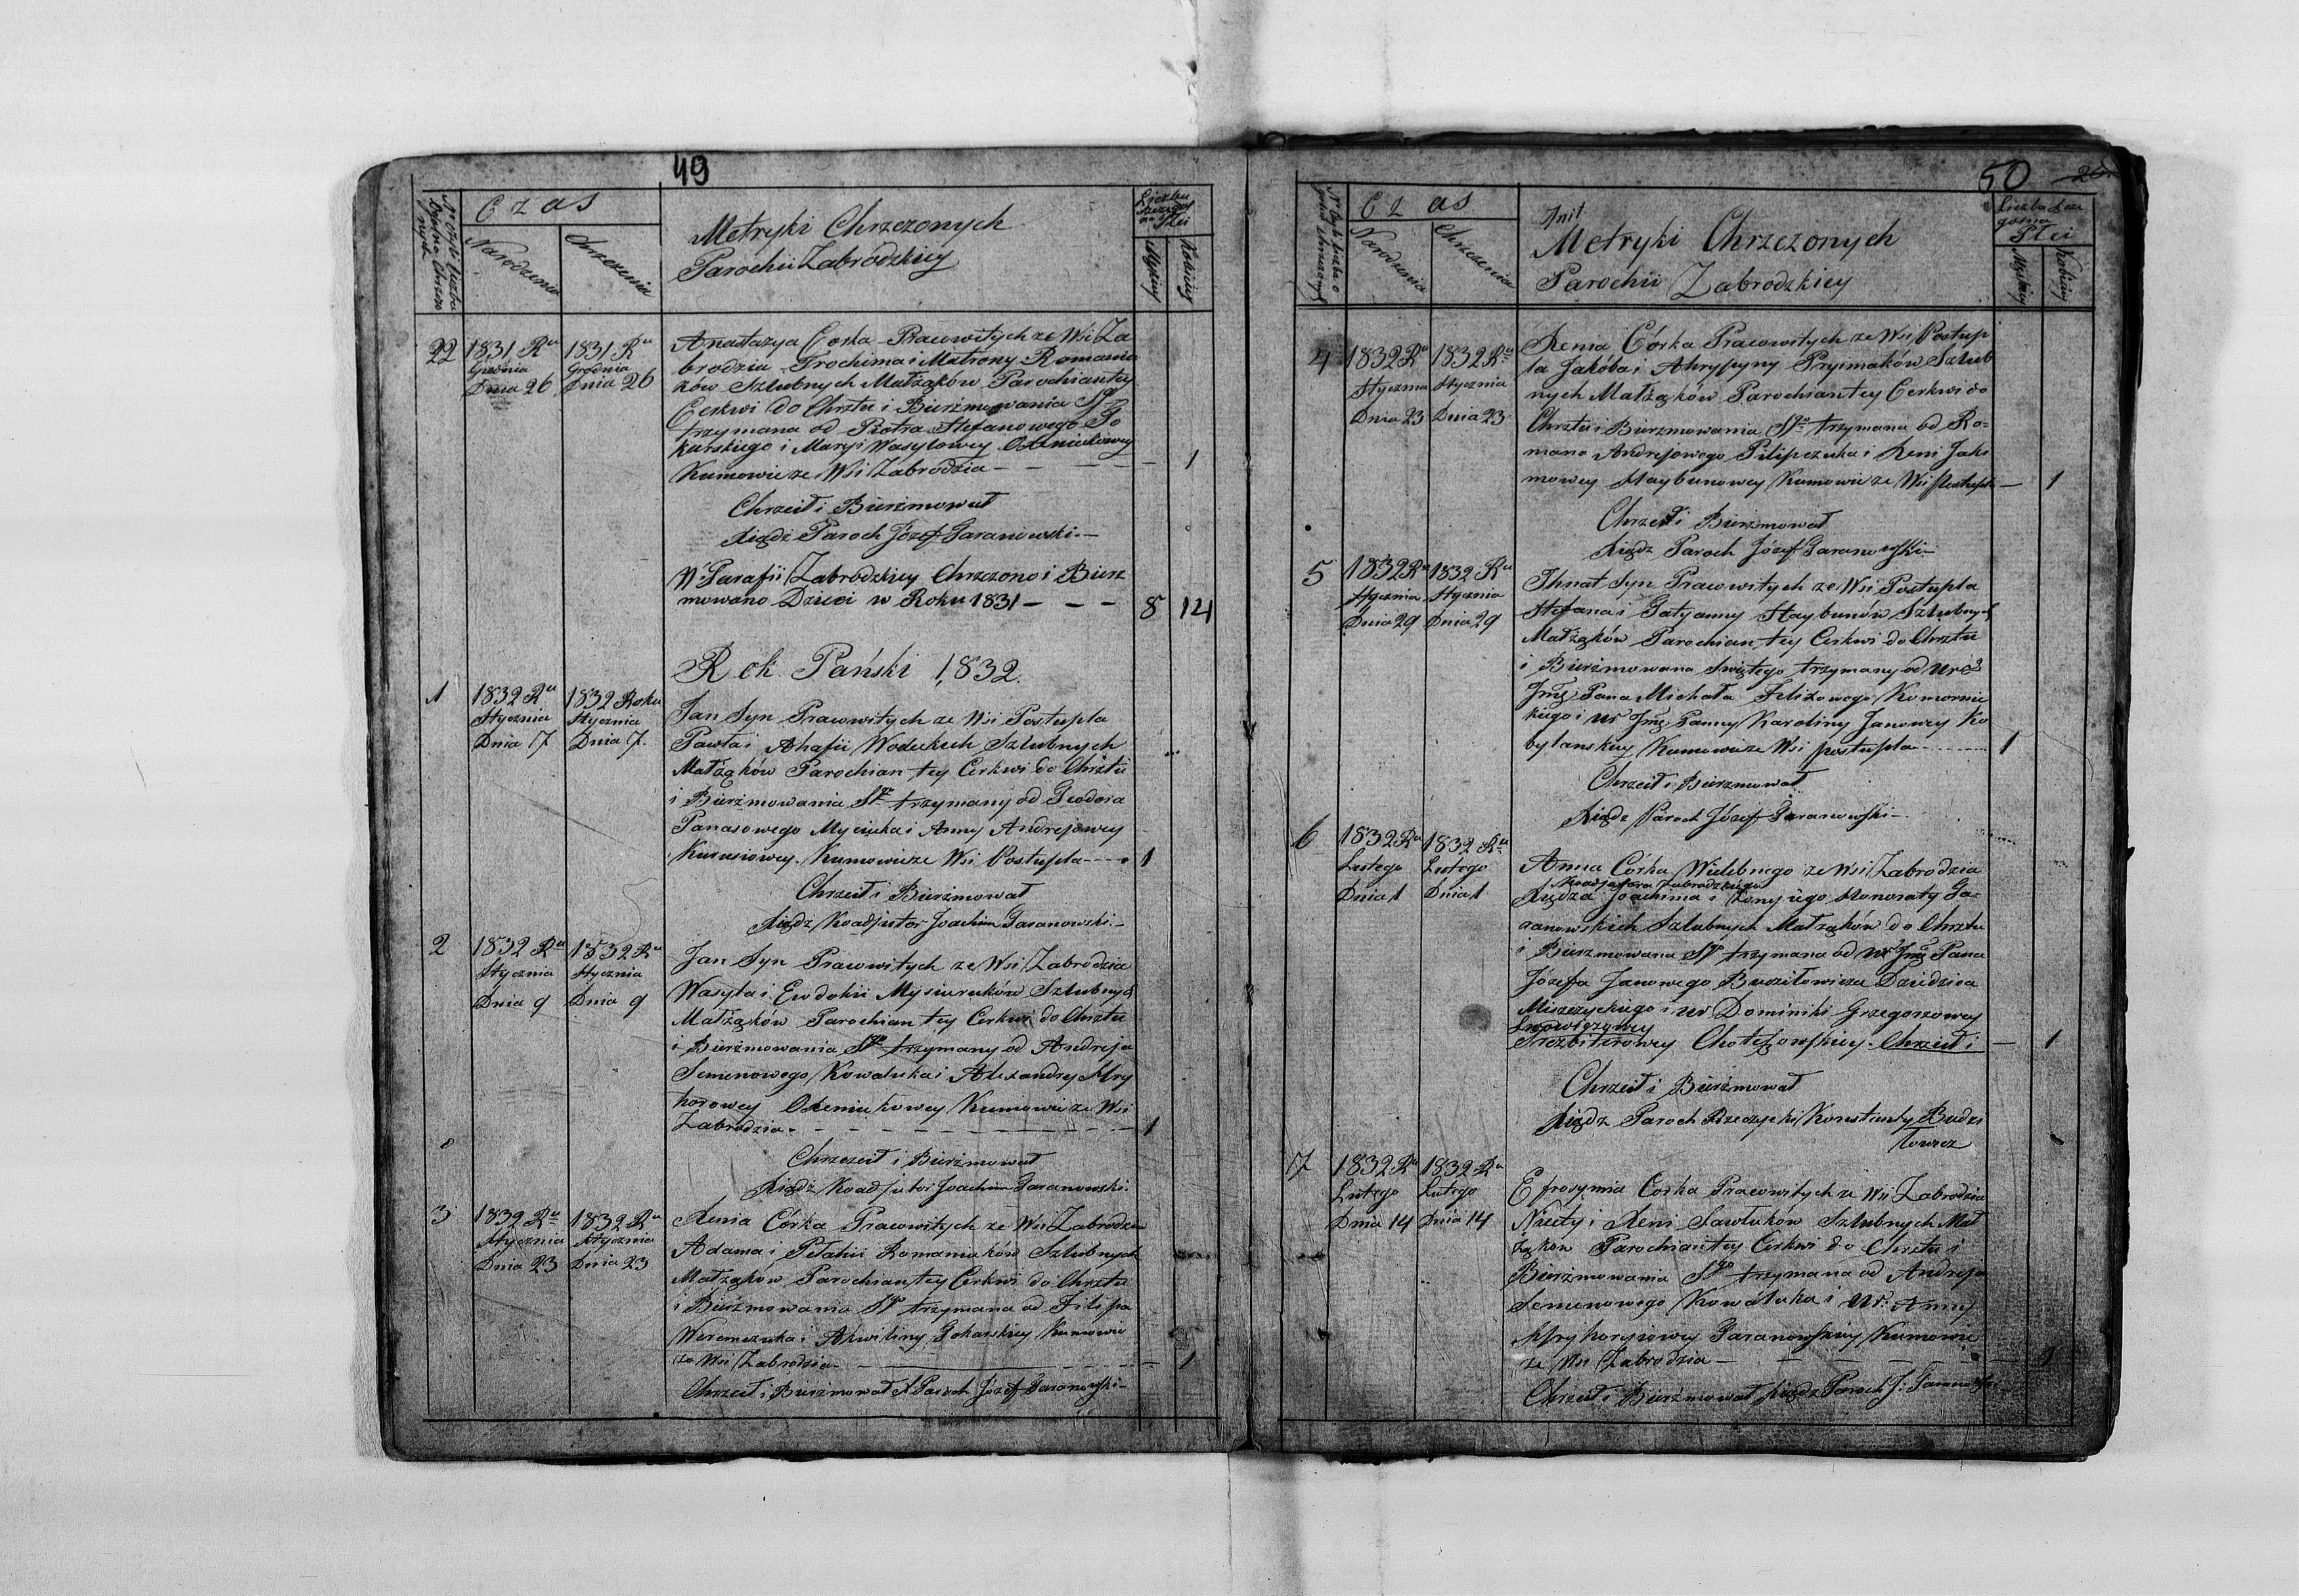 49
C z a s
Narodzenia
Chrzczenia
Metryki Chrzczonych
Parochii Zabrodzkiey
Płci
Męzkiey
Kobiecey
22
1831 Ru
Grudnia
Dnia 26
1831 Ru
Grudnia
Dnia 26
Anastazya Corka Pracowitych ze Wsi Za
brodzia Trochima i Matrony Romaniu
ków Szlubnych Małżąków Parochian tey
Cerkwi do Chrztu i Bierzmowania Sgo
trzymana od Piotra Stefanowego Po
karskiego i Maryi Wasylowey
Kumowie ze Wsi Zabrodzia – – – – – 1
Chrzcił i Bierzmował
Xiądz Paroch Józef Taranowski.–
W Parafii Zabrodzkiey Chrzczono i Bierz
mowano Dzieci w Roku 1831 – – – 8 14
Rok Pański 1832.
1
1832 Ru
Stycznia
Dnia 7
1832 Roku
Stycznia
Dnia 7.
Jan Syn Pracowitych ze Wsi Postupla
Pawła i Ahafii Szlubnych
Małżąków Parochian tey Cerkwi do Chrztu
i Bierzmowania Sgo trzymany od Teodora
Panasowego i Anny Andrejowey
Kumowie ze Wsi Postupla – – – – 1
Chrzcił i Bierzmował
Xiądz Koadjutor Joachim Taranowski.–
2
1832 Ru
Stycznia
Dnia 9
1832 Ru
Stycznia
Dnia 9
Jan Syn Pracowitych ze Wsi Zabrodzia
Wasyla i Ewdokii Szlubnych
Małżąków Parochian tey Cerkwi do Chrztu
i Bierzmowania Sgo trzymany od Andreja
Semenowego Kowaluka i Alexandry Hry
horowey Kumowie ze Wsi
Zabrodzia – – – – – – – – – 1
Chrzcził i Bierzmował
Xiądz Koadjutor Joachim Taranowski.
3
1832 Ru
Stycznia
Dnia 23
1832 Ru
Stycznia
Dnia 23
Xenia Córka Pracowitych ze Wsi Zabrodzia
Adama i Pełahii Romaniuków Szlubnych
Małżąkow Parochian tey Cerkwi do Chrztu
i Bierzmowania Sgo trzymana od Filipa
Weremczuka i Akwiliny Pokarskiey Kumowie
ze Wsi Zabrodzia – – – – – 1
Chrzcił i Bierzmował X Paroch Józef Taranowski–
50
26
C z as
Narodzenia
Chrzczenia
Metryki Chrzczonych
Parochii Zabrodzkiey
Płci
Męzkiey
Kobiecey
4
1832 Ru
Stycznia
Dnia 23
1832 Ru
Stycznia
Dnia 23
Xenia Córka Pracowitych ze Wsi Postup
la Jakóba i Ahrypyny Pryimaków Szlub
nych Małżąków Parochian tey Cerkwi do
Chrztu i Bierzmowania Sgo trzymana od Ro=
mana Andrejowego Pilipczuka i Xeni Jaki
mowey Haybunowey Kumowie ze Wsi Postupla – 1
Chrzcił i Bierzmował
Xiądz Paroch Józef Taranowski–
5
1832 Ru
Stycznia
Dnia 29
1832 Ru
Stycznia
Dnia 29
Ihnat Syn Pracowitych ze Wsi Postupla
Stefana i Tatyanny Haybunów Szlubnych
Małżąków Parochian tey Cerkwi do Chrztu
i Bierzmowana Swiętego trzymany od Uro
Jmę Pana Michała Felixowego Komornic
kiego i Ur Jmę Panny Karoliny Janowey Ko
bylanskiey Kumowie ze Wsi postupla – – – – 1
Chrzcił i Bierzmował
Xiądz Paroch Józef Taranowski–.
6
1832 Ru
Lutego
Dnia 1
1832 Ru
Lutego
Dnia 1
Anna Córka Wielebnego ze Wsi Zabrodzia
Koadjutora Zabrodzkiego
Xiędza Joachima i żony iego Honoraty Ta=
ranowskich Szlubnych Małżąków do Chrztu
i Bierzmowana Sgo trzymana od Ur Jmę Pana
Józefa Janowego Budziłowicza Dziedzica
Miszczyckiego i Ur Dominiki Grzegorzowey
Prezbiterowey Chrzcił i – 1
Chrzcił i Bierzmował
Xiądz Paroch Rzeczycki Konstanty Budzi
łowicz
7
1832 Ru
Lutego
Dnia 14
1832 Ru
Lutego
Dnia 14
Efrozymia Corka Pracowitych ze Wsi Zabrodzia
Nikity i Xeni Sawluków Szlubnych Mał
żąkow Parochian tey Cerkwi do Chrztu i
Bierzmowania Sgo trzymana od Andreja
Semenowego Kowaluka i Ur: Anny
Hryhoryiowey Taranowskiey Kumowie
ze Wsi Zabrodzia – – – – 1
Chrzcił i Bierzmował Xiądz Paroch J: Taranowski